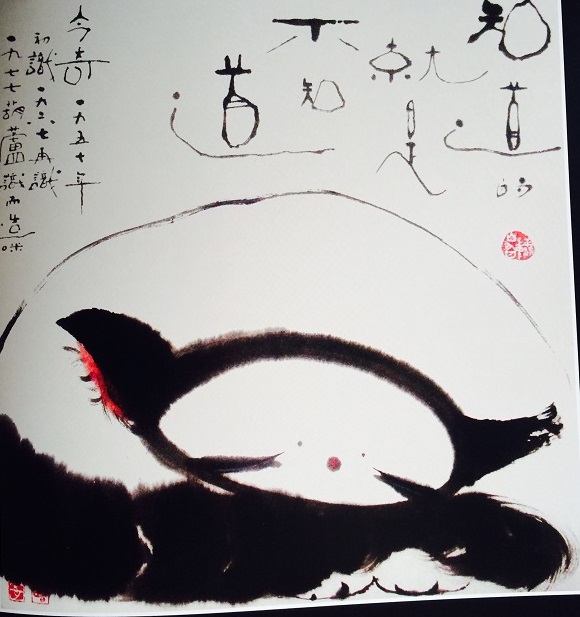 知道的
就是
不知
道
今奇 一九五十年
初識 一九六七再識
一九七七葫蘆識而造